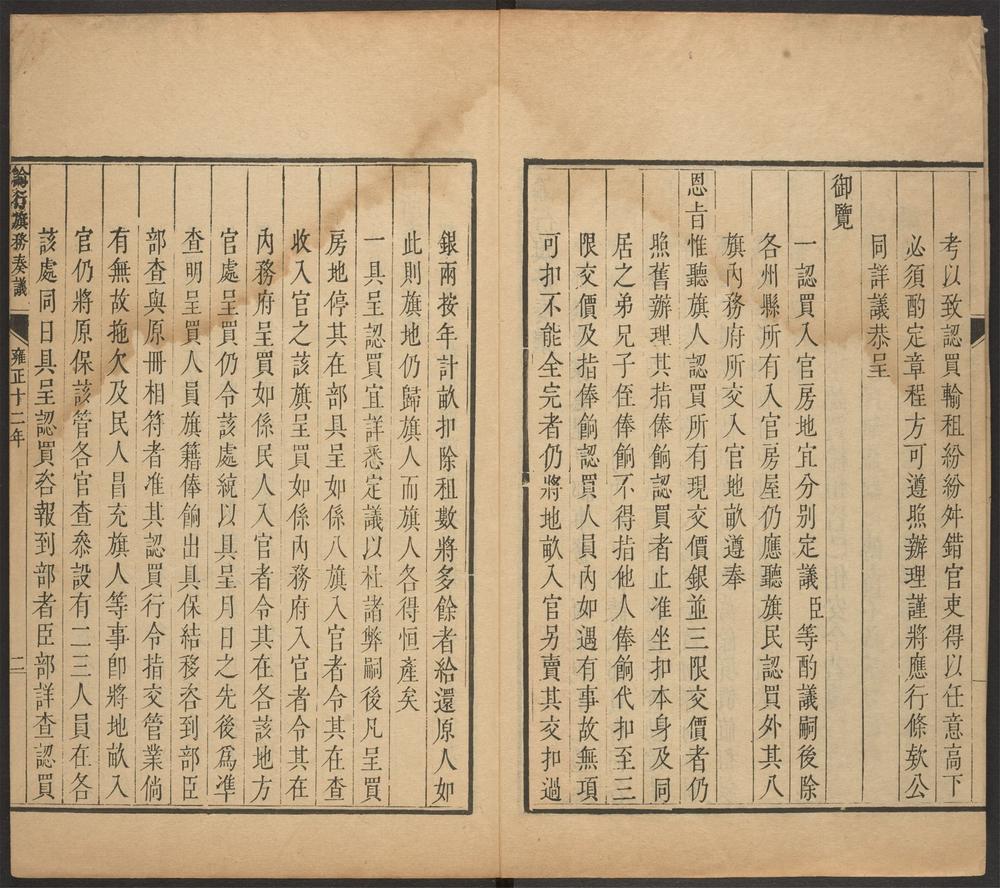 考以致認買輸租紛紛舛錯官吏得以任意高下
必須酌定章程方可遵照辦理謹將應行條欵公
同詳議恭呈
御覽
一認買入官房地宜分别定議臣等酌議嗣後除
各州縣所有入官房屋仍應聽旗民認買外其八
旗內務府所交入官地畝遵奉
恩旨惟聽旗人認買所有現交價銀並三限交價者仍
照舊辦理其指俸餉認買者止准坐扣本身及同
居之弟兄子侄俸餉不得指他人俸餉代扣至三
限交價及指俸餉認買人員內如遇有事故無項
可扣不能全完者仍將地畝入官另賣其交扣過
銀兩按年計畝扣除租數將多餘者給還原人如
此則旗地仍歸旗人而旗人各得恒產矣
一具呈認買宜詳悉定議以杜諸弊嗣後凡呈買
房地停其在部具呈如係八旗入官者令其在查
收入官之該旗呈買如係內務府入官者令其在
內務府呈買如係民人入官者令其在各該地方
官處呈買仍令該處統以具呈月日之先後爲凖
查明呈買人員旗籍俸餉出具保結移咨到部臣
部查與原冊相符者准其認買行令指交管業倘
有無故拖欠及民人冒充旗人等事卽將地畝入
官仍將原保該管各官查叅設有二三人員在各
該處同日具呈認買咨報到部者臣部詳查認買
諭行旗務奏議
雍正十二年
二